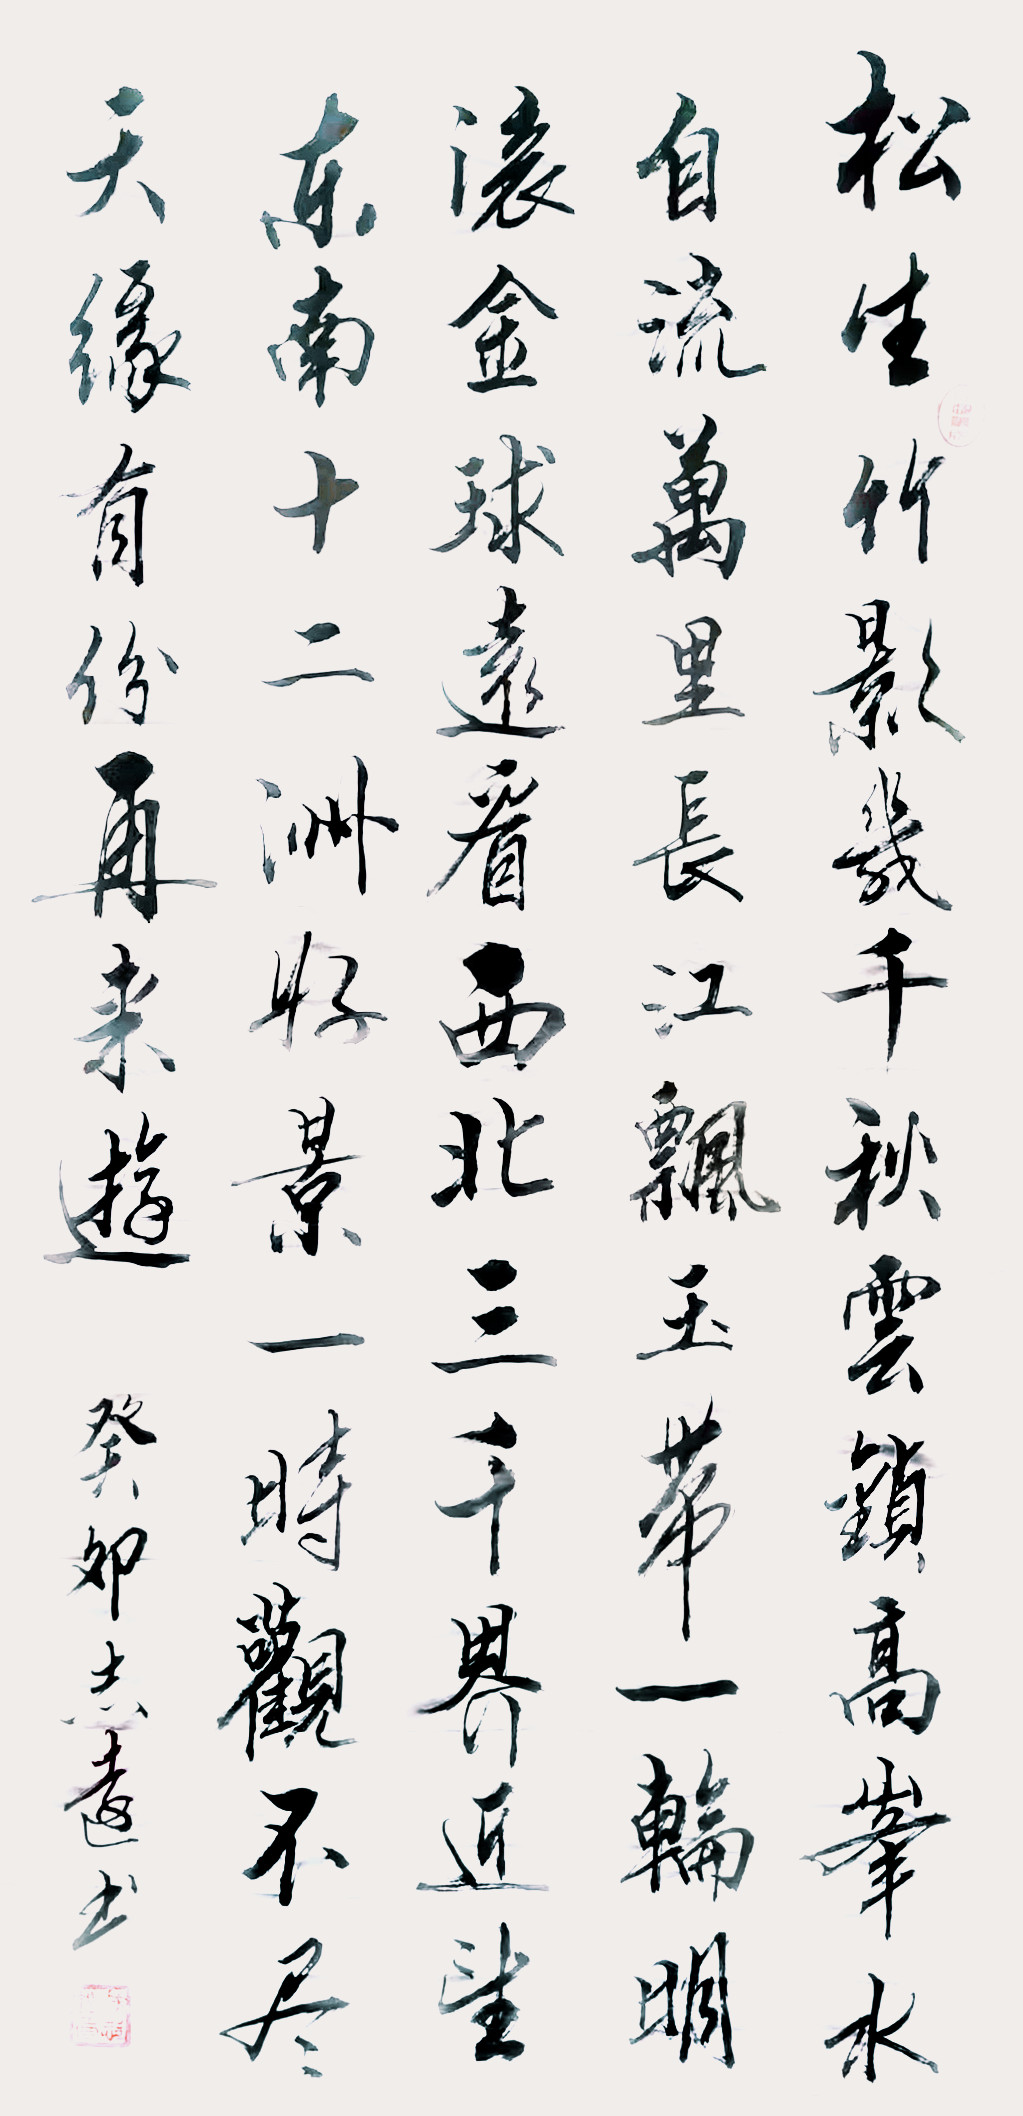 松生竹影幾千秋雲鎖高峯水
自流萬里長江飄玉帶一輪明
滾金球遠看西北三千界近望
东南十二洲好景一時觀不尽
天緣有份再来遊
癸卯志遠书